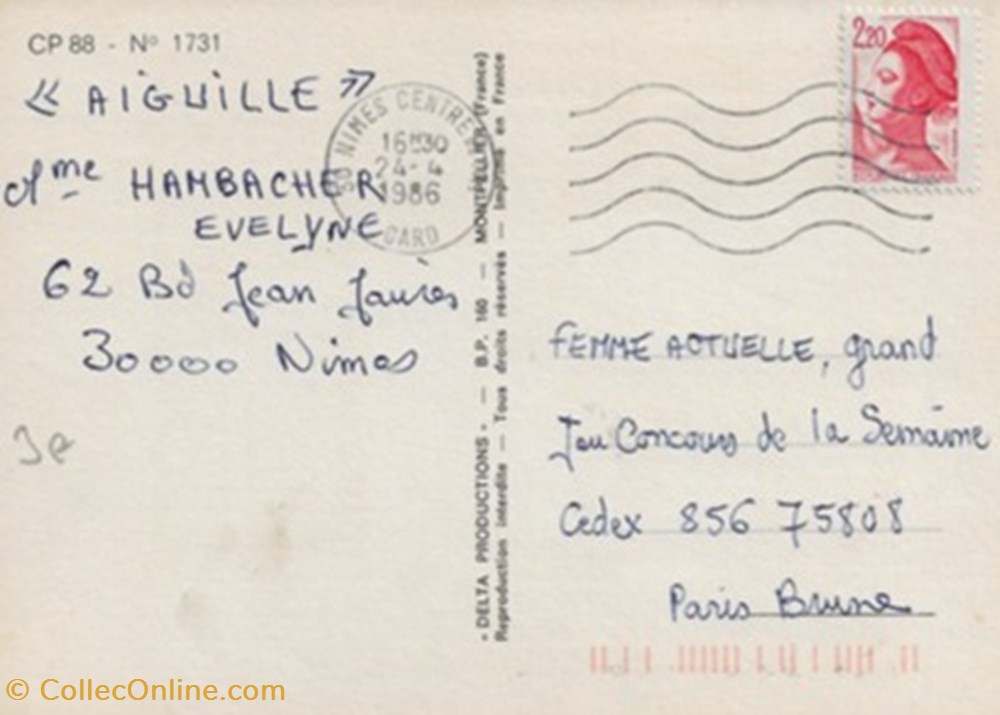 CP 88 - Nº 1731
« AIGUILLE »
Mme HAMBACHER
EVELYNE
62 Bd Jean Jaurès
30000 Nimes
3e
30 NIMES CENTRE
16H30
24-4
1986
GARD
2,20
« DELTA PRODUCTIONS » — B.P. 160 — MONTPELLIER (France)
Reproduction interdite — Tous droits réservés — Imprimé en France
FEMME ACTUELLE, grand
Jeu Concours de la Semaine
Cedex 856 75808
Paris Brune
© CollecOnline.com